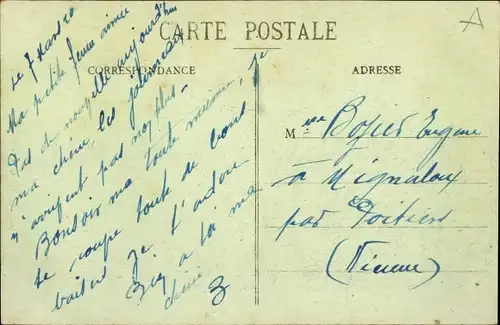 CARTE POSTALE
CORRESPONDANCE
ADRESSE
Le 7
Ma petite femme aimée
Pas de nouvelle aujourd'hui
ma chérie, les journeaux
n'arrivent pas non plus
Bonsoir ma toute mienne, je
te coupe toute de bons
baisers je t'adore
à toi ma
chérie
Mme Boyer Eugène
à Mignaloux
par Poitiers
(Vienne)